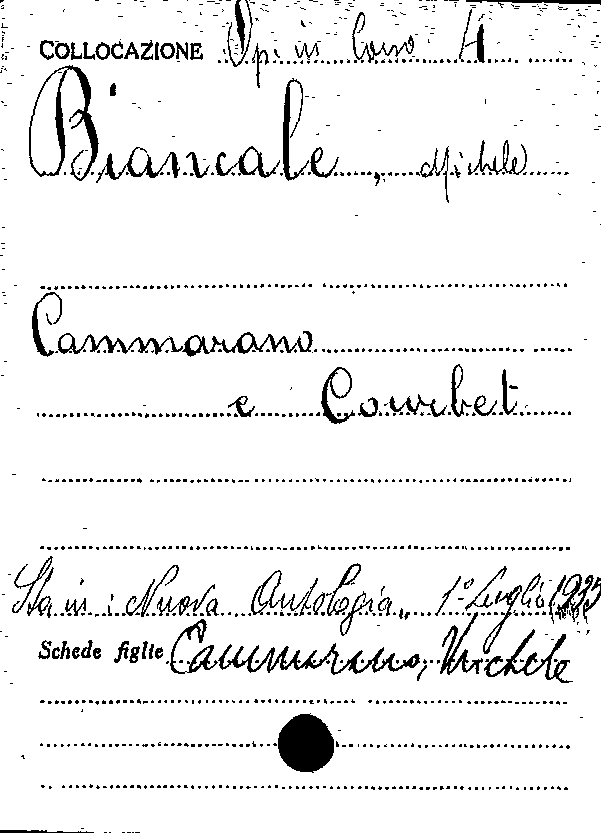 COLLOCAZIONE Op. in Corso 4
Biancale, Michele
Cammarano
e Courbet
Sta in: "Nuova Antologia", 1° Luglio 1935
Schede figlie Cammarano, Michele